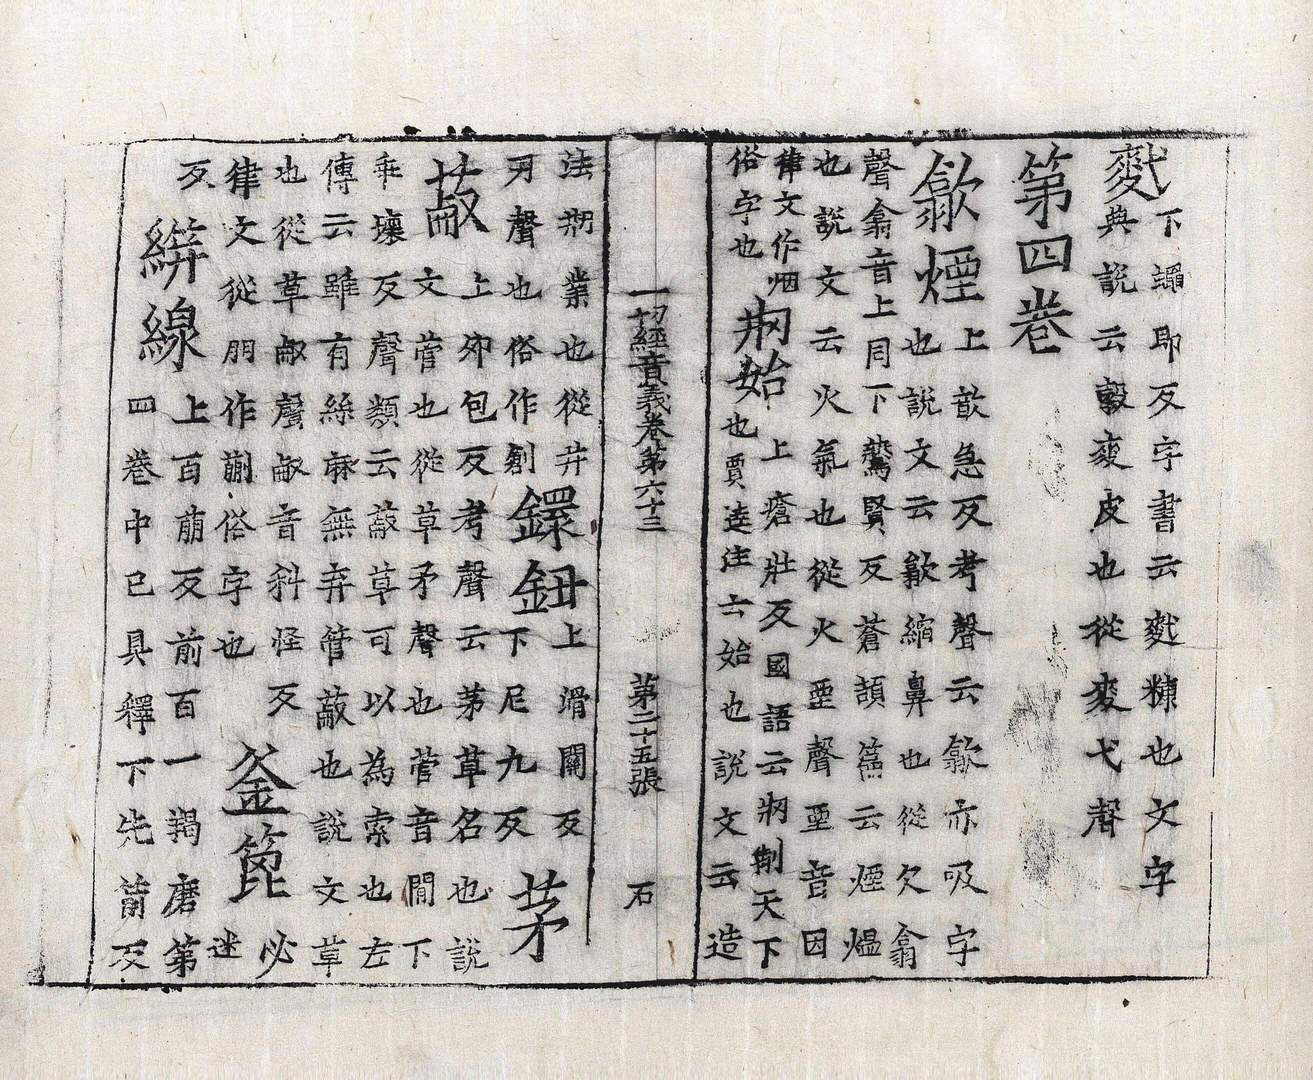 䴬下蠅即反字書云䴬糠也文字
典說云䴬麥皮也從麥弋聲
第四卷
歙煙上歆急反考聲云歙亦吸字
也說文云歙縮鼻也從欠翕
聲翕音上同下鷰賢反蒼頡篇云煙熅
也說文云火氣也從火垔聲垔音因
律文作烟
俗字也
刱始上瘡壯反國語云刱制天下
也賈逵注云始也說文云造
一切經音義卷第六十三 第二十五張 石
法刱業也從井
刅聲也俗作創
鐶鈕上滑關反
下尼九反
茅
蒯上卯包反考聲云茅草名也說
文菅也從草矛聲也菅音間下
乖壞反聲類云蒯草可以為索也左
傳云雖有絲麻無弃菅蒯也說文草
也從草㕟聲㕟音科怪反
律文從朋作萠俗字也
釜箆必
迷
反
絣線上百萠反前百一羯磨第
四卷中已具釋下先薦反